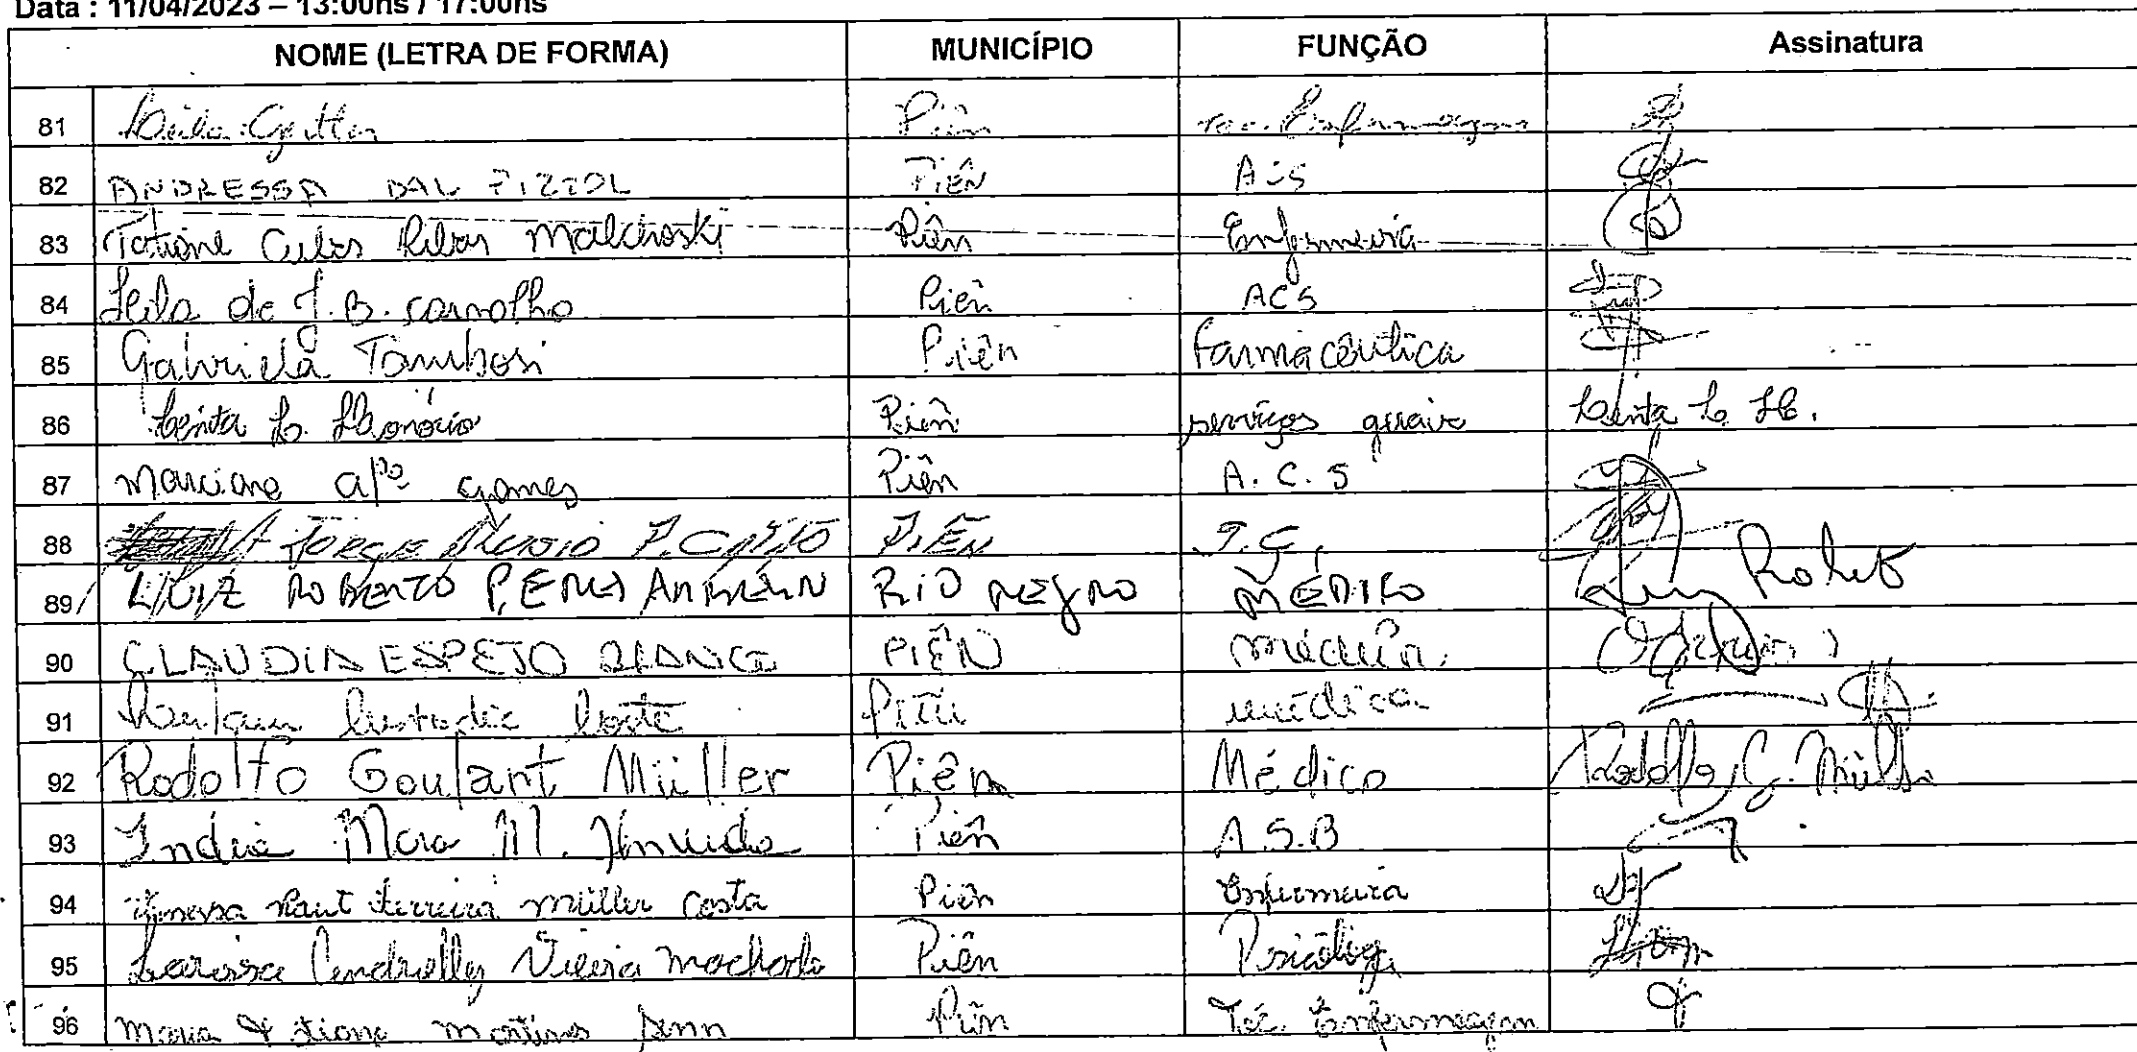 Data : 11/04/2023 – 13:00hs / 17:00hs
NOME (LETRA DE FORMA) MUNICÍPIO FUNÇÃO Assinatura
81 Piên Tec. Enfermagem
82 ANDRESSA DAL PIZZOL PIÊN ACS
83 Tatiane Ribas Malchoski Piên Enfermeira
84 Leila de J. B. Carvalho Piên ACS
85 Gabriela Tambosi Piên Farmacêutica
86 Lenita L. Honório Piên serviços gerais Lenita L. H.
87 Marciane Apª Gomes Piên A.C.S
88 JORGE PIÊN
89 LUIZ ROBERTO RIO NEGRO MÉDICO Roberto
90 CLAUDIA ESPEJO PIÊN médica
91 Piên médica
92 Rodolfo Goulart Müller Piên Médico Rodolfo G. Müller
93 Mara M. Almeida Piên A.S.B
94 Ferreira Müller Costa Piên Enfermeira
95 Larissa Vieira Machado Piên
96 Maria Martins Piên Téc. Enfermagem